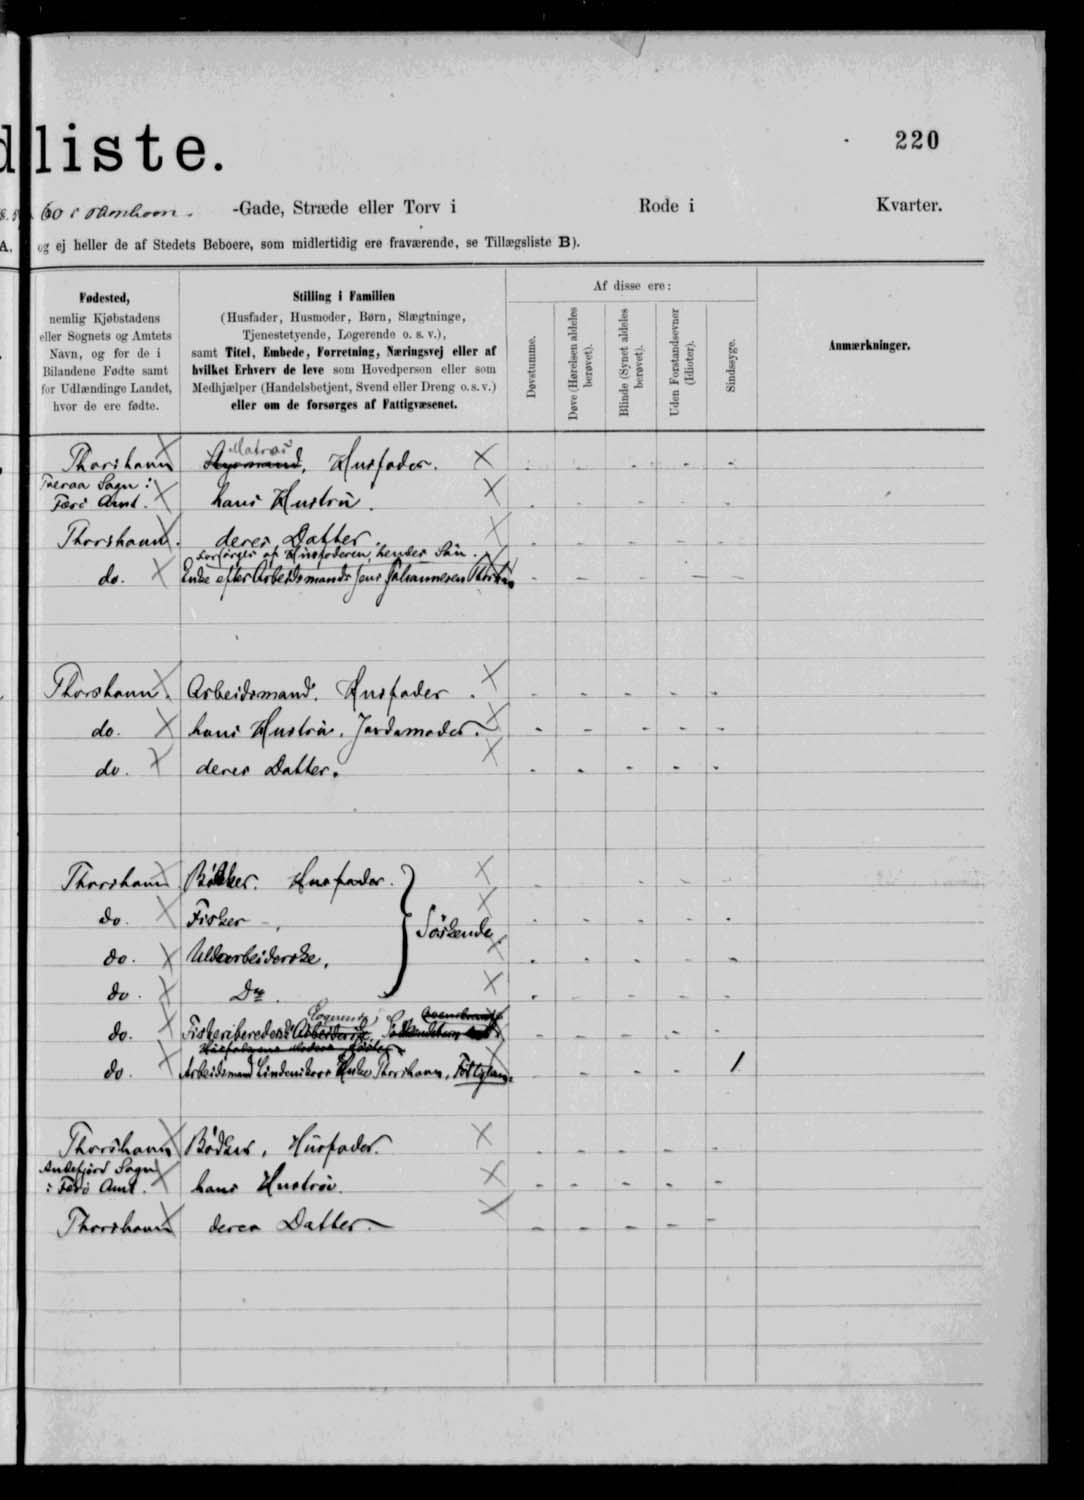 dliste.
220
60 i Thorshavn. -Gade, Stræde eller Torv i Rode i Kvarter.
A. og ej heller de af Stedets Beboere, som midlertidig ere fraværende, se Tillægsliste B).
Fødested,
nemlig Kjøbstadens
eller Sognets og Amtets
Navn, og for de i
Bilandene Fødte samt
for Udlændinge Landet,
hvor de ere fødte.
Stilling i Familien
(Husfader, Husmoder, Børn, Slægtninge,
Tjenestetyende, Logerende o. s. v.),
samt Titel, Embede, Forretning, Næringsvej eller af
hvilket Erhverv de leve som Hovedperson eller som
Medhjælper (Handelsbetjent, Svend eller Dreng o. s. v.)
eller om de forsørges af Fattigvæsenet.
Af disse ere:
Døvstumme.
Døve (Hørelsen aldeles
berøvet).
Blinde (Synet aldeles
berøvet).
Uden Forstandsevner
(Idioter).
Sindssyge.
Anmærkninger.
Matros
Thorshavn Styrmand, Husfader. X
Sagn i
Færö Amt. X hans Hustru. X
Thorshavn. deres Datter. X
forsørges af Husfaderen, hendes Sön.
do. X Enke efter Arbeidsmand Jens Johannesen
Thorshavn. Arbeidsmand. Husfader. X
do. X hans Hustru. Jordemoder. X
do. X deres Datter. X
Thorshavn Bödker. Husfader. X
do. X Fisker X
Söskende.
do. X Uldarbeiderske. X
do. X Do. X
Logerende
do. X Fiskeribereder
do. X Arbeidsmand Thorshavn, 1
Thorshavn Bödker, Husfader. X
Andefjord Sogn
i Færö Amt. X hans Hustru. X
Thorshavn deres Datter. X